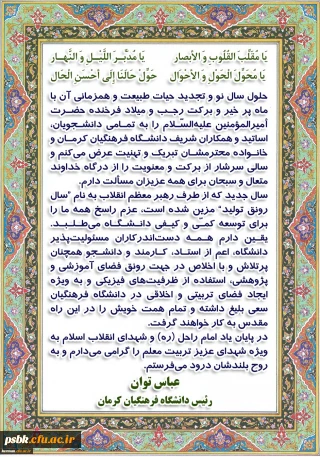 یَا مُقَلِّبَ القُلُوبِ وَ الأبصَار    یَا مُدَبِّرَ اللَّیلِ وَ النَّهار
یَا مُحَوِّلَ الحَولِ وَ الأحوَال    حَوِّل حَالَنَا إلَی أحسَنِ الحَال
حلول سال نو و تجدید حیات طبیعت و همزمانی آن با
ماه پر خیر و برکت رجب و میلاد فرخنده حضرت
أمیرالمؤمنین علیه‌السّلام را به تمامی دانشجویان،
اساتید و همکاران شریف دانشگاه فرهنگیان کرمان و
خانواده محترمشان تبریک و تهنیت عرض می‌کنم و
سالی سرشار از برکت و معنویت را از درگاه خداوند
متعال و سبحان برای همه عزیزان مسألت دارم.
سال جدید که از طرف رهبر معظم انقلاب به نام "سال
رونق تولید" مزین شده است، عزم راسخ همه ما را
برای توسعه کمی و کیفی دانشگاه می‌طلبد.
یقین دارم همه دست‌اندرکاران مسئولیت‌پذیر
دانشگاه، اعم از استاد، کارمند و دانشجو همچنان
پرتلاش و با اخلاص در جهت رونق فضای آموزشی و
پژوهشی، استفاده از ظرفیت‌های فیزیکی و به ویژه
ایجاد فضای تربیتی و اخلاقی در دانشگاه فرهنگیان
سعی بلیغ داشته و تمام همت خویش را در این راه
مقدس به کار خواهند گرفت.
در پایان یاد امام راحل (ره) و شهدای انقلاب اسلام به
ویژه شهدای عزیز تربیت معلم را گرامی می‌دارم و به
روح بلندشان درود می‌فرستم.
عباس توان
رئیس دانشگاه فرهنگیان کرمان
psbk.cfu.ac.ir